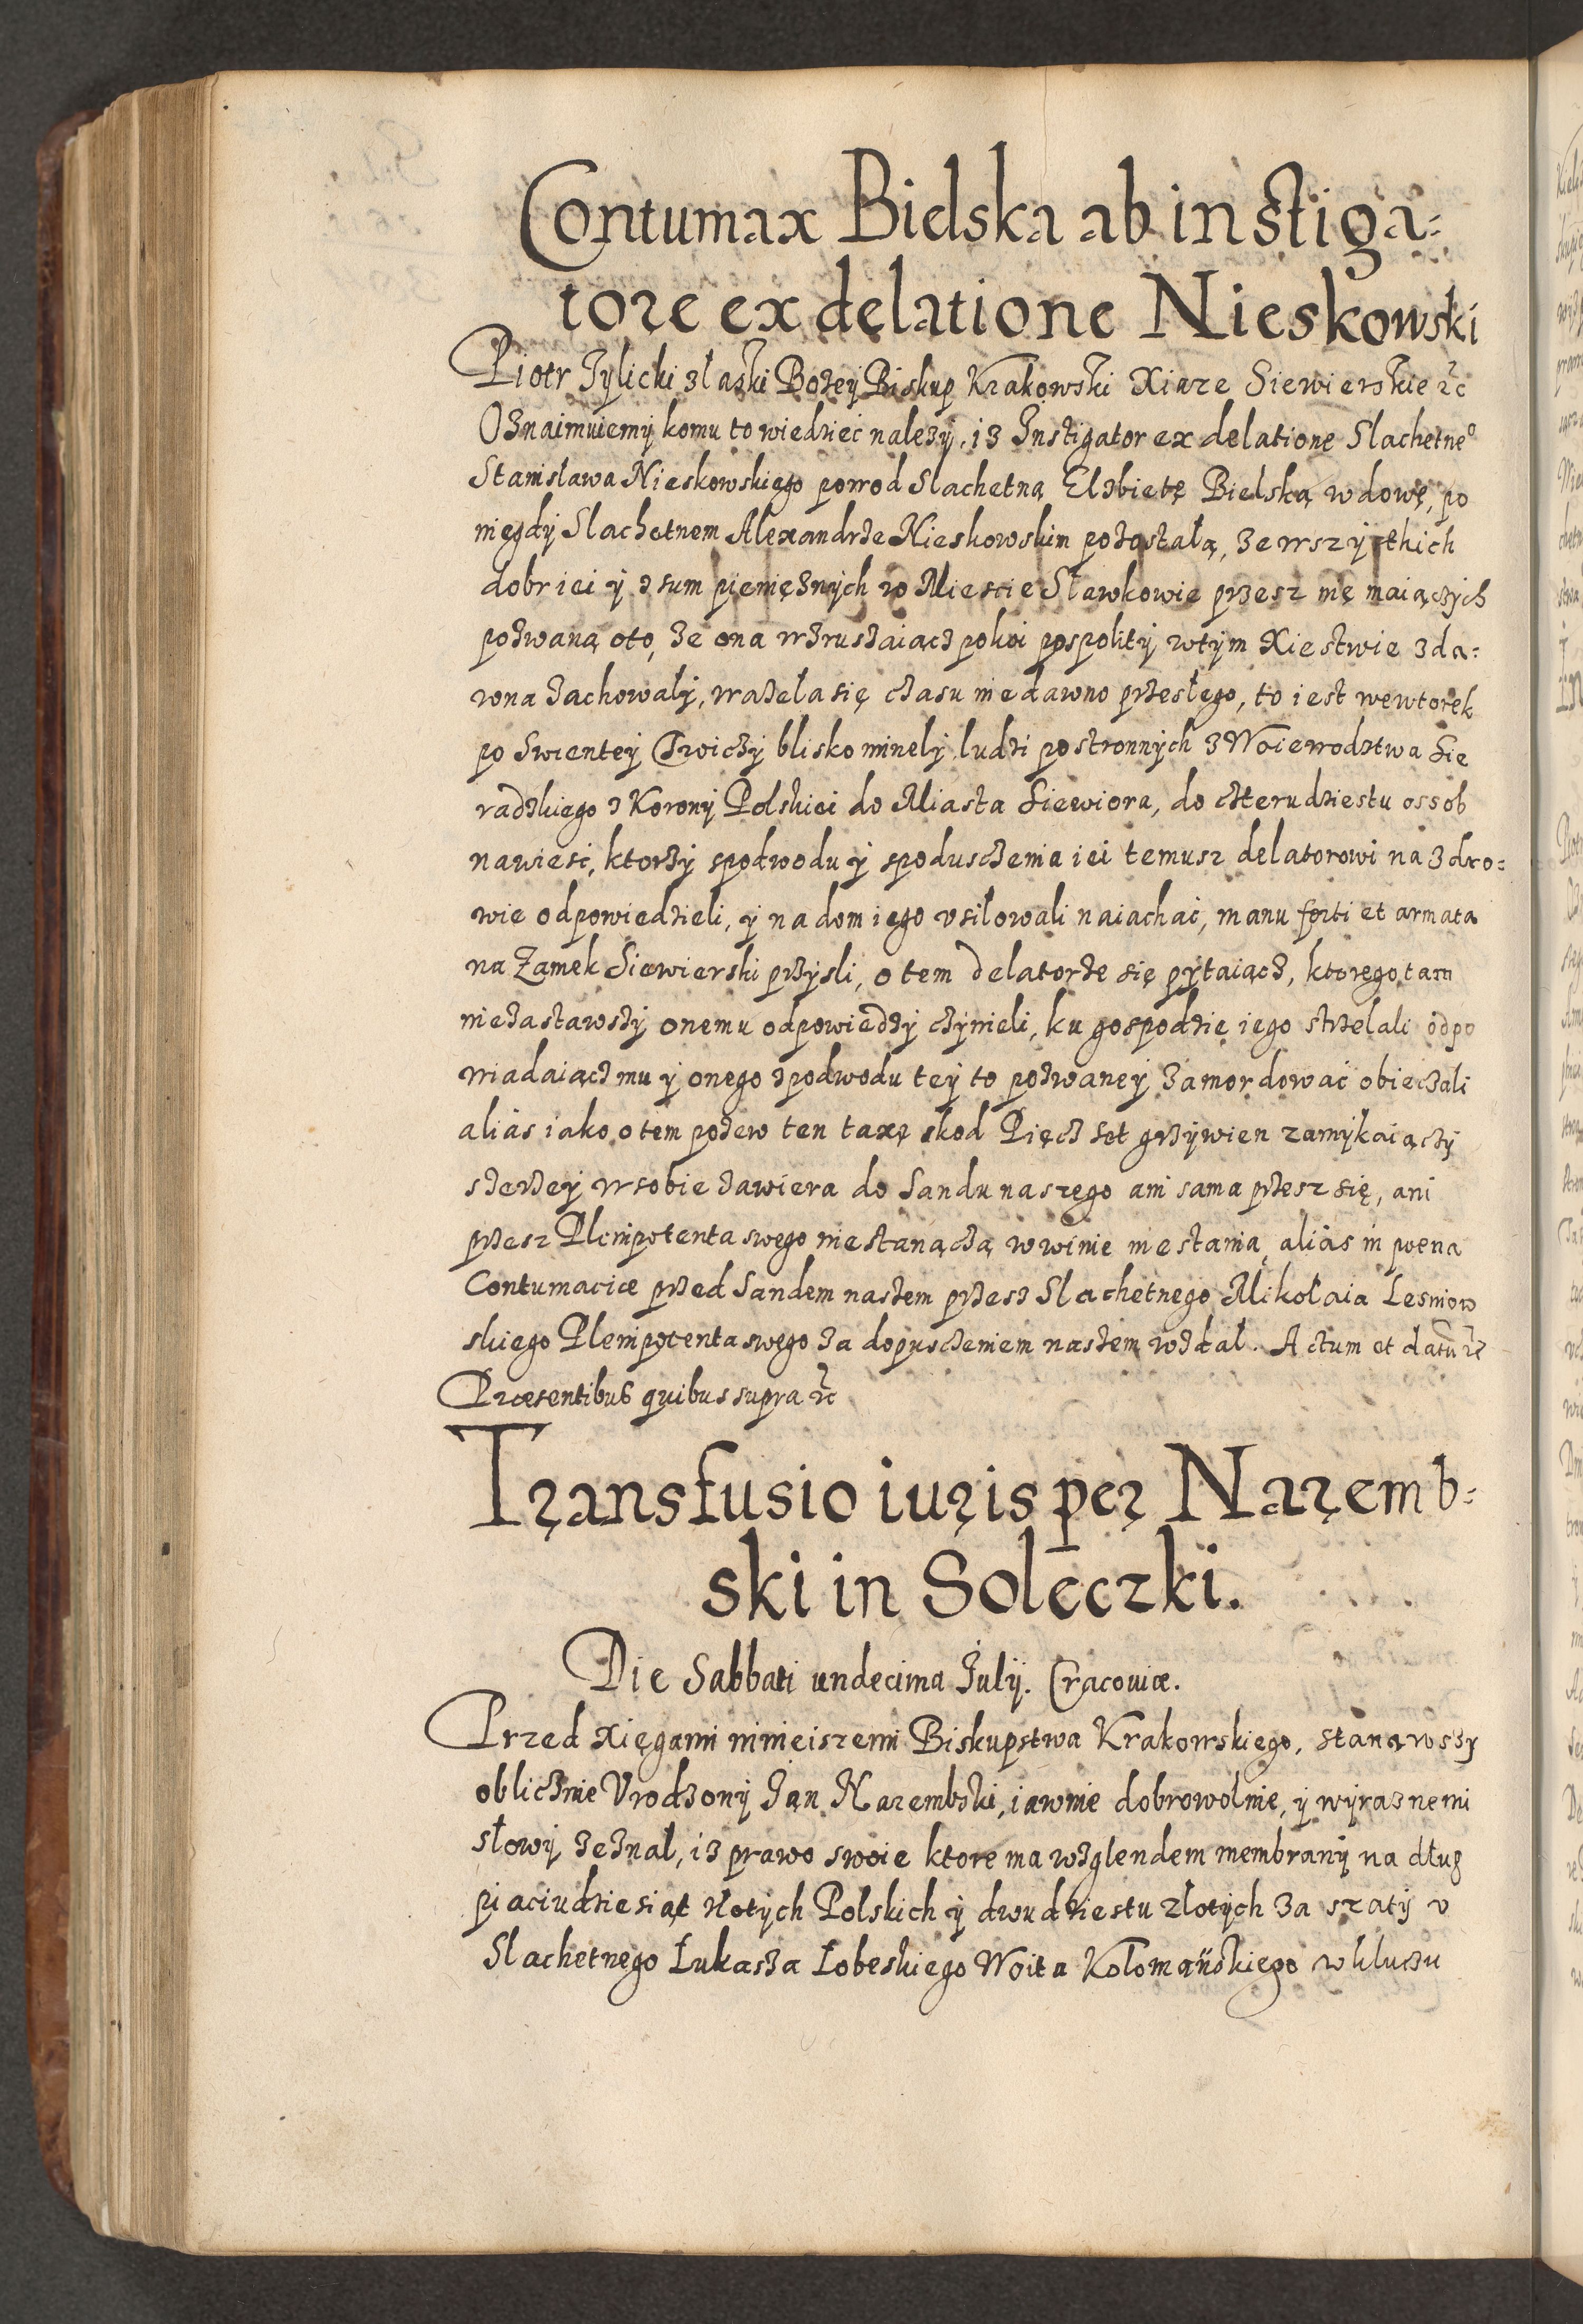 Contumax Bielska ab instiga=
tore ex delatione Nieskowski
Piotr Tylicki z łaski Bozey Biskup Krakowski Xiaze Siewierskie etc
Oznaimuiemy komu to wiedzieć nalezy, iz Instigator ex delatione Slachetneo
Stanisława Nieskowskiego powod Slachetną Elzbietę Bielską wdowę, po
niegdy Slachetnem Alexandrze Nieskowskim pozostałą, ze wszythkich
dobr iei y z sum pieniężnych w Miescie Sławkowie przesz nię maiączych
pozwaną oto, ze ona wzruszaiącz pokoi pospolity wtym Xiestwie zda=
wna zachowały, wazeła się czasu niedawno przesłego, to iest wewtorek
po Swientey Troiczy blisko minely ludzi postronnych z Woiewodztwa Sie
radzkiego z Korony Polskiei do Miasta Siewiora, do czterudziestu ossob
nawiesć, ktorzy spodwodu y spoduszczenia iei temusz delatorowi na zdro=
wie odpowiedzieli, y na dom iego vsiłowali naiachać, manu forti et armata
na Zamek Siewierski przysli, o tem delatorze się pytaiącz, ktorego tam
niezastawszy onemu odpowiedzy czynieli, ku gospodzie iego strzelali odpo
wiadaiącz mu y onego zpodwodu tey to pozwaney zamordować obieczali
aliàs iako o tem pozew ten taxę skod Pięcz set grzywien zamykaiączy
szerzey wsobie zawiera do Sandu naszego ani sama przesz się, ani
przesz Plenipotenta swego niestanączą w winie niestania, aliàs in poena
Contumaciæ przed Sandem naszem przesz Slachetnego Mikołaia Lesniow
skiego Plenipotenta swego za dopuszczeniem naszem wzdał. Actum et datu etc
Præsentibus quibus supra etc
Transfusio iuris per Naremb=
ski in Soleczki.
Die Sabbati undecima Iulij. Cracoviæ.
Przed xięgami ninieiszemi Biskupstwa Krakowskiego, stanąwszy
oblicznie Vrodzony Jan Narembski, iawnie dobrowolnie, y wyraznemi
słowy zeznał, iz prawo swoie ktore ma wzglendem membrany na dług
piaciudziesiąt złotych Polskich y dwudziestu złotych za szaty v
Slachetnego Łukasza Łobeskiego Woita Kołomańskiego w kluczu